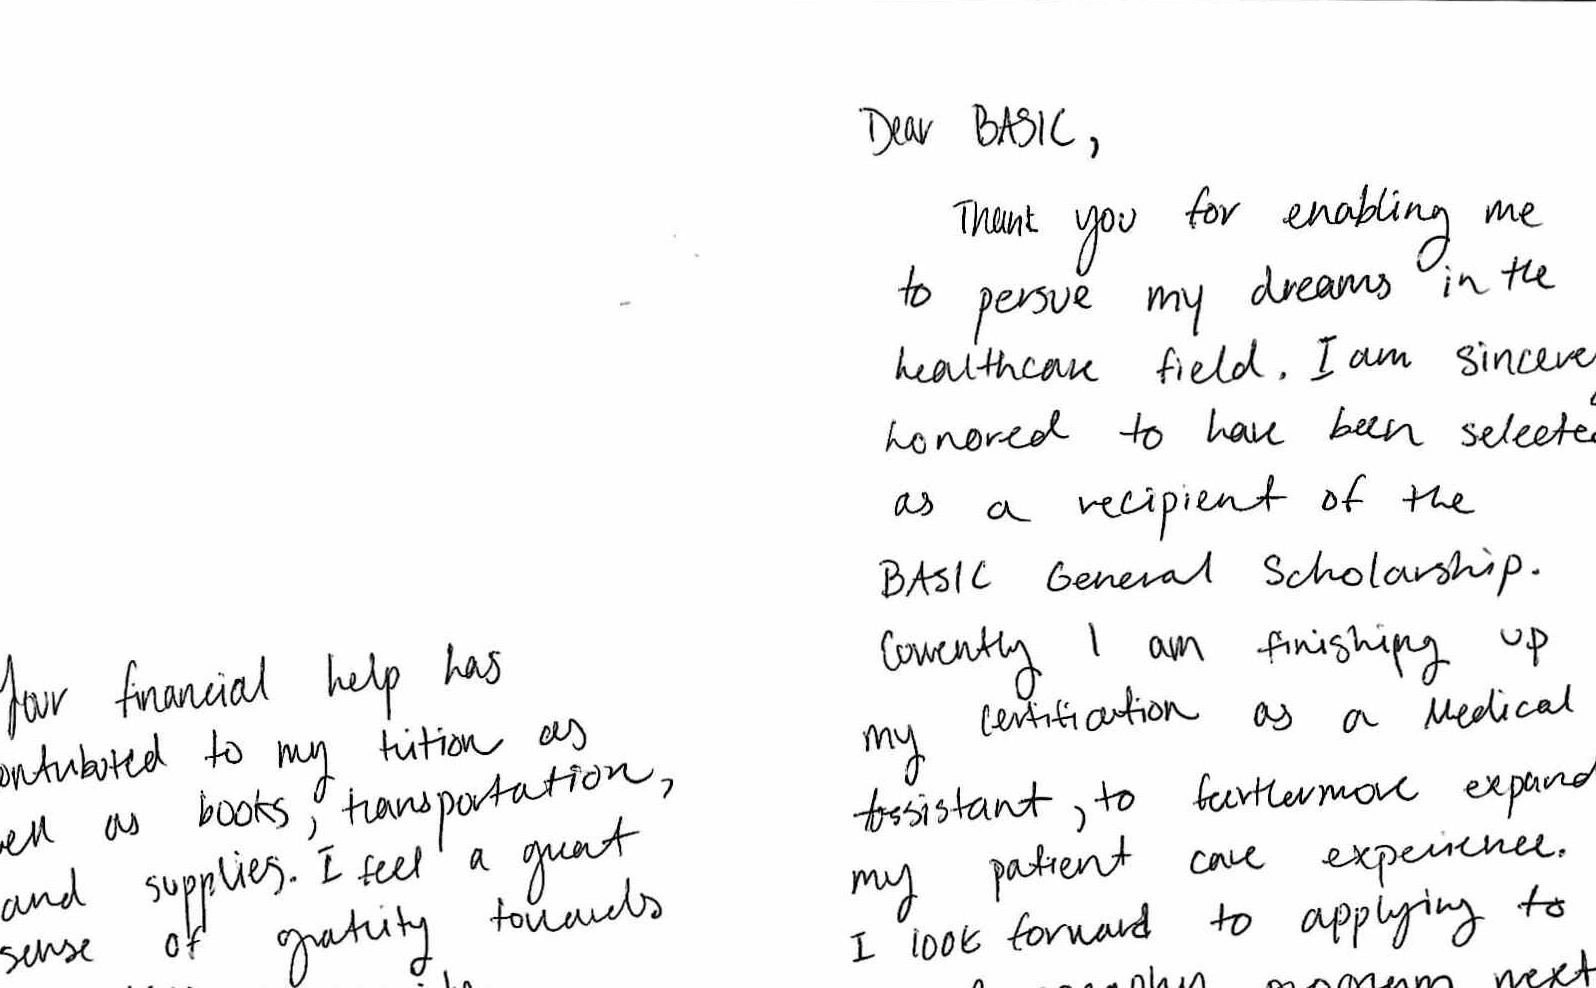 Dear BASIC,
Thank you for enabling me
to persue my dreams in the
healthcare field. I am sincere
honored to have been selected
as a recipient of the
BASIC General Scholarship.
Currently I am finishing up
my certification as a Medical
Assistant, to furthermore expand
my patient care experience.
I look forward to applying to
next
Your financial help has
ontributed to my tuition as
ell as books, transportation,
and supplies. I feel a great
sense of gratuity towards